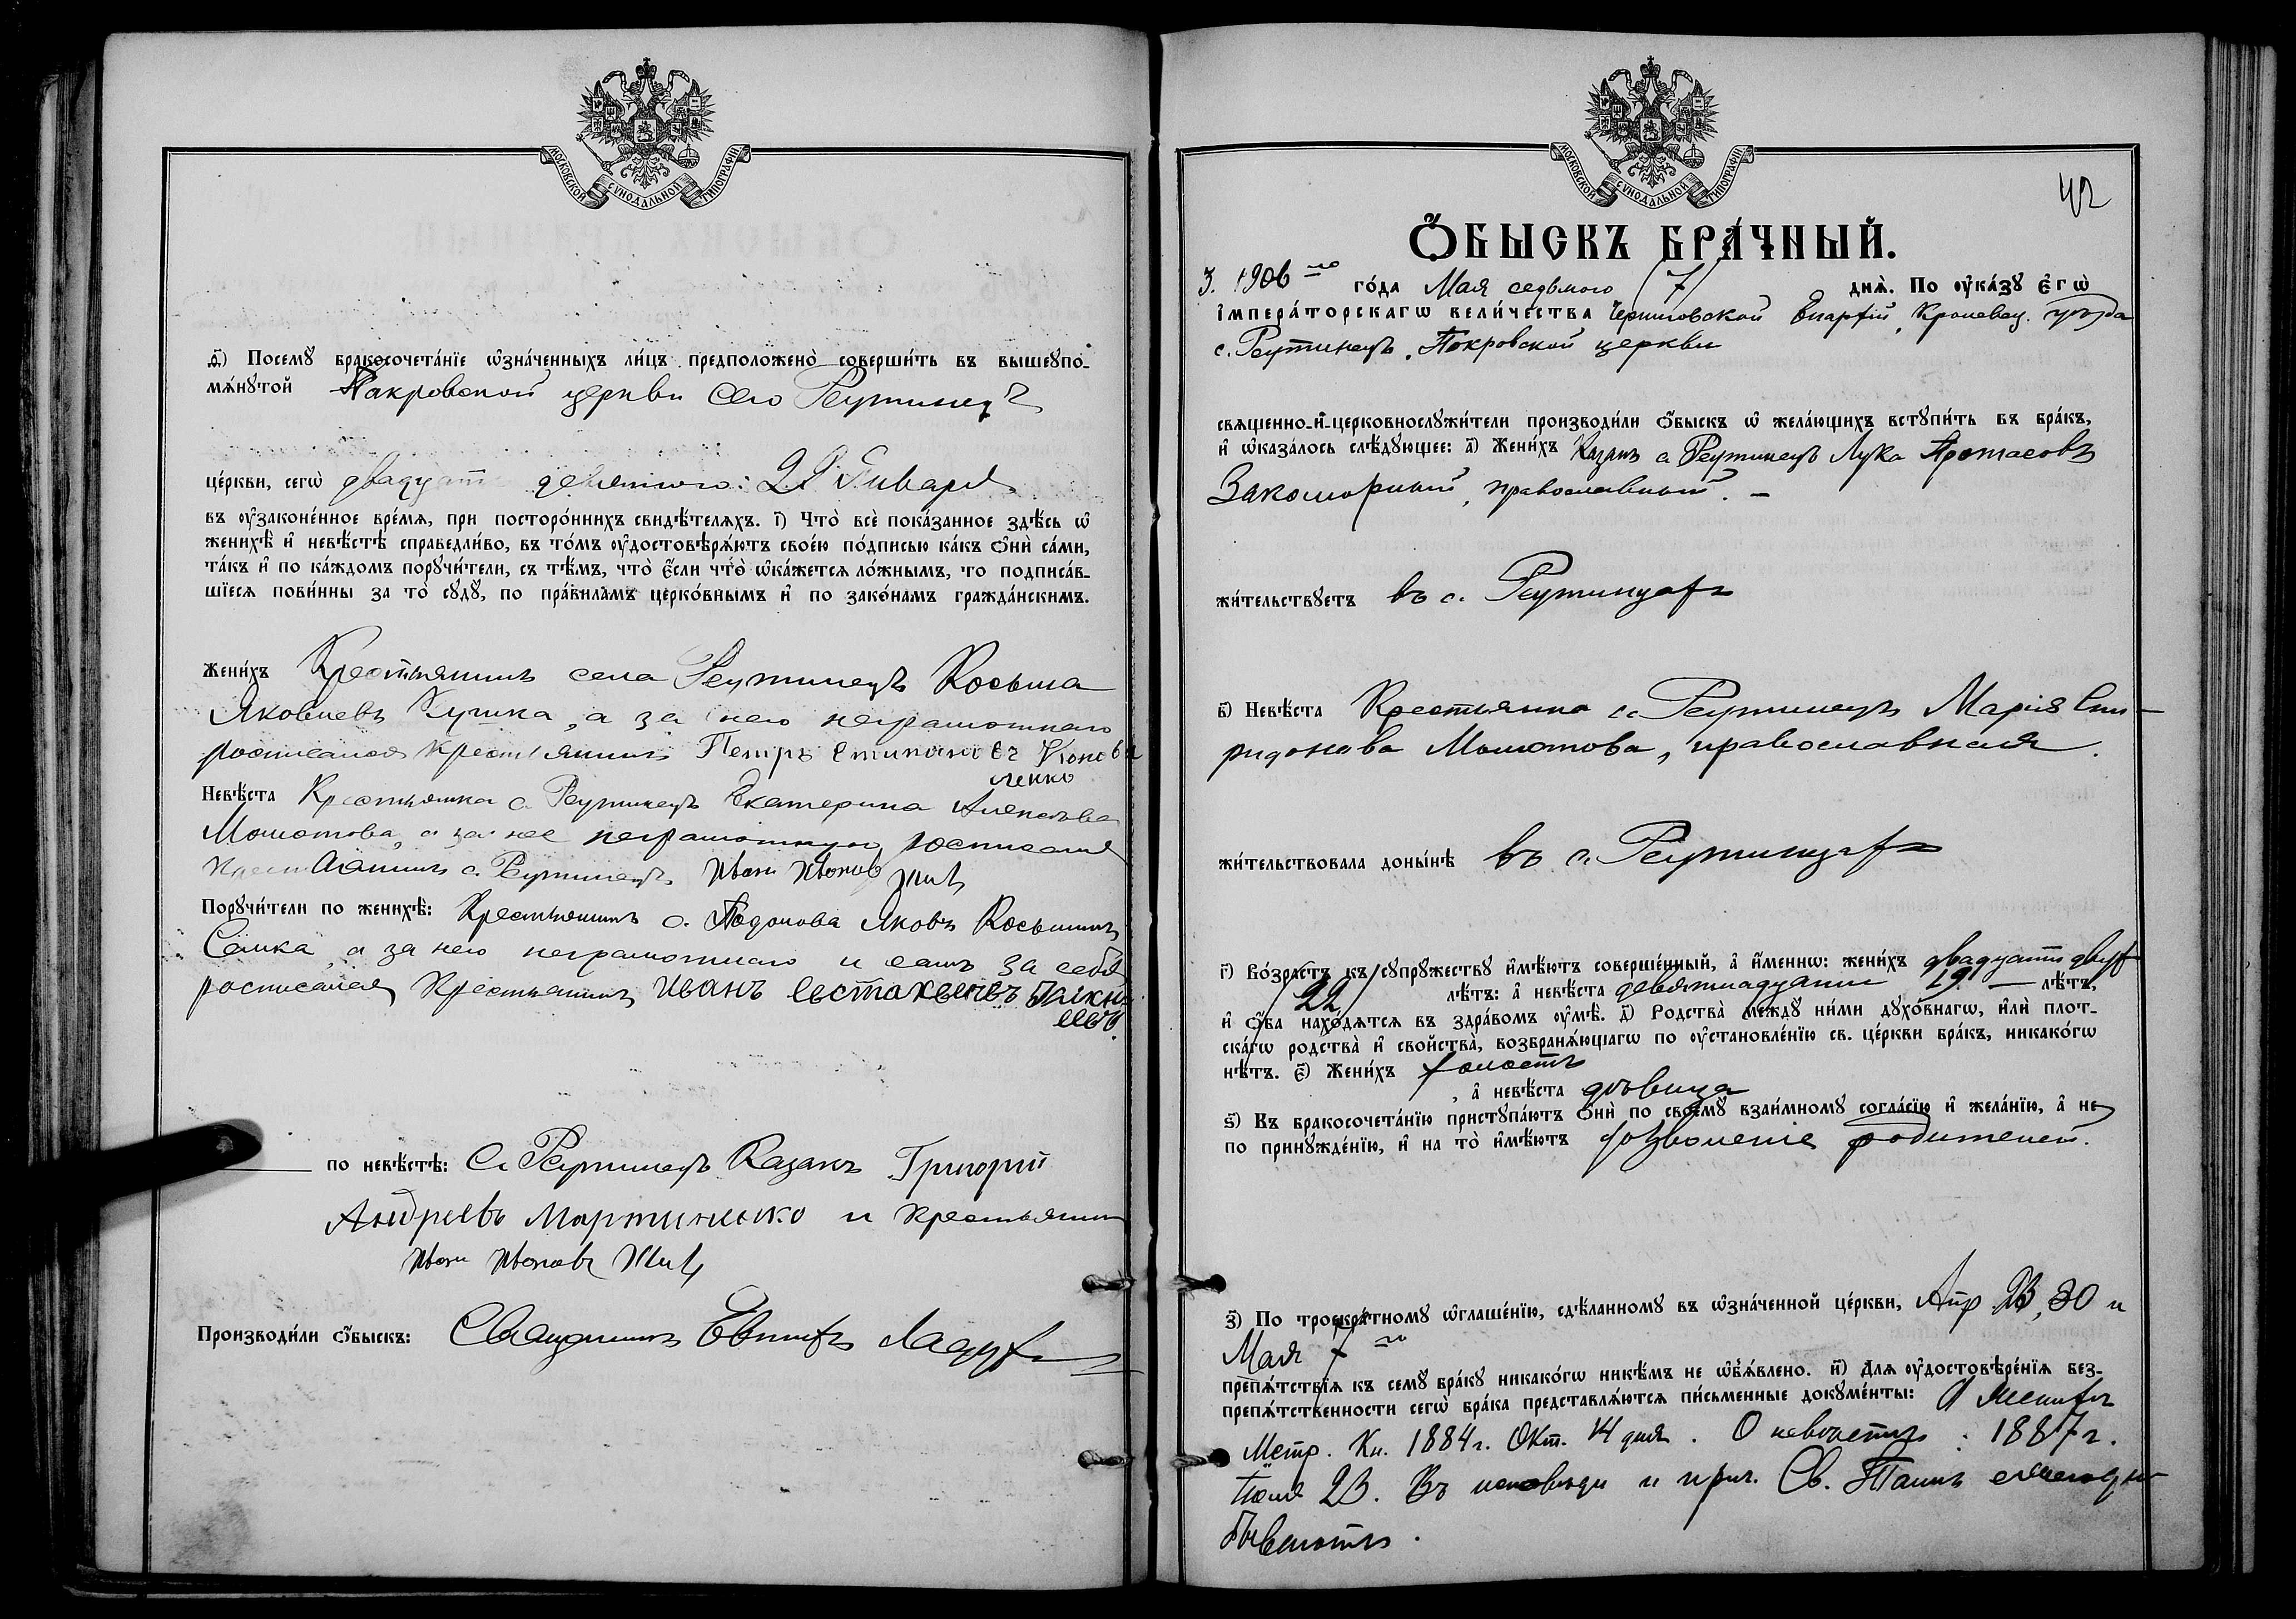 МОСКОВСКОЙ СѴНОДАЛЬНОЙ ТИПОГРАФІИ
д҃) Посемꙋ бракосочета́нїе ѡ҆зна́ченныхъ ли́цъ предположено̀ соверши́ть въ вышеꙋпо-
мѧ́нꙋтой Пакровской церкви село Реутинецъ
це́ркви, сегѡ̀ двадцать девятого: 29 Января
въ ᲂу҆законе́нное вре́мѧ, при посторо́ннихъ свидѣ́телѧхъ. і҃) Что̀ всѐ пока́занное здѣ́сь ѡ҆
женихѣ̀ и҆ невѣ́стѣ справедли́во, въ то́мъ ᲂу҆достовѣрѧ́ютъ свое́ю по́дписью ка́къ ѻ҆нѝ са́ми,
та́къ и҆ по ка́ждомъ порꙋчи́тели, съ тѣ́мъ, что̀ є҆́сли что̀ ѡ҆ка́жетсѧ ло́жнымъ, то подписа́в-
шїесѧ пови́нны за то̀ сꙋдꙋ̀, по пра́виламъ церко́внымъ и҆ по зако́намъ гражда́нскимъ.
Жени́хъ Крестьянинъ села Реутинецъ Косьма
Яковлевъ, а за него неграмотнаго
росписался крестьянинъ Петръ Коновa
ленко
Невѣ́ста Крестьянка с. Реутинецъ Екатерина Алексѣева
Момотова, а за нее неграмотную росписался
крестьянинъ с. Реутинецъ Иванъ Ивановъ
Порꙋчи́тели по женихѣ̀: Крестьянинъ с. Подолова Яковъ Косьминъ
Сомка, а за него неграмотнаго и самъ за себя
росписался Крестьянинъ Иванъ Евстахиевъ
по невѣ́стѣ: С. Реутинецъ Казакъ Григорий
Андреевъ Мартиненко и крестьянин
Иванъ Ивановъ
Производи́ли ѻ҆́быскъ: Священникъ Евпифъ
МОСКОВСКОЙ СѴНОДАЛЬНОЙ ТИПОГРАФІИ
42
Ѻ҆́БЫСКЪ БРА́ЧНЫЙ.
3. 1906 го го́да Мая седьмого (7) днѧ̀. По ᲂу҆ка́зꙋ Є҆гѡ̀
І҆мпера́торскагѡ вели́чества Черниговской Епархіи, Кролевец. уѣзда
с. Реутинецъ, Покровской церкви
свѧщенно-и҆-церковнослꙋжи́тели производи́ли ѻ҆́быскъ ѡ҆ жела́ющихъ встꙋпи́ть въ бра́къ,
и҆ ѡ҆каза́лось слѣ́дꙋющее: а҃) Жени́хъ Казакъ с. Реутинецъ Лука Протасовъ
Закоморный, православный. –
жи́тельствꙋетъ въ с. Реутинцахъ
в҃) Невѣ́ста Крестьянка с. Реутинецъ Марія Спи-
ридонова Момотова, православная.
жи́тельствовала доны́нѣ въ с. Реутинцахъ
г҃) Во́зрастъ къ сꙋпрꙋ́жествꙋ и҆мѣ́ютъ соверше́нный, а҆ и҆́меннѡ: жени́хъ двадцати двухъ
(22) лѣ́тъ: а҆ невѣ́ста девятнадцати 19. – лѣ́тъ,
и҆ ѻ҆́ба нахо́дѧтсѧ въ здра́вомъ ᲂу҆мѣ̀. д҃) Родства̀ междꙋ̀ ни́ми дꙋхо́внагѡ, и҆лѝ плот-
ска́гѡ родства̀ и҆ свойства̀, возбранѧ́ющагѡ по ᲂу҆становле́нїю св. це́ркви бра́къ, никако́гѡ
нѣ́тъ. є҃) Жени́хъ холостъ
, а҆ невѣ́ста дѣвица
ѕ҃) Къ бракосочета́нїю пристꙋпа́ютъ ѻ҆нѝ по своемꙋ̀ взаи́мномꙋ согла́сїю и҆ жела́нїю, а҆ не
по принꙋжде́нїю, и҆ на то̀ и҆мѣ́ютъ дозволеніе родителей.
з҃) По троекра́тномꙋ ѡ҆глаше́нїю, сдѣ́ланномꙋ въ ѡ҆зна́ченной це́ркви, Апр 23, 30 и
Мая 7 го
препѧ́тствїѧ къ семꙋ̀ бра́кꙋ никако́гѡ никѣ́мъ не ѡ҆б̾ѧ́влено. и҃) Длѧ ᲂу҆достовѣре́нїѧ без-
препѧ́тственности сегѡ̀ бра́ка представлѧ́ютсѧ пи́сьменные докꙋме́нты: О женихѣ
Метр. Кн. 1884 г. Окт. 14 дня. О невѣстѣ: 1887 г.
Іюля 23. Въ исповѣди и прич. Св. Таинъ ежегодно
бываютъ.